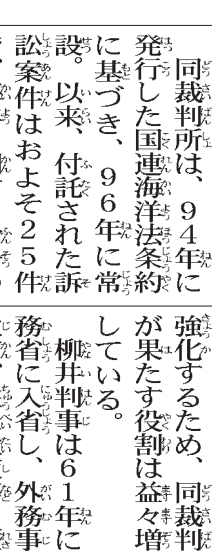 同裁判所は、94年に
発行した国連海洋法条約
に基づき、96年に常
設。以来、付託された訴
訟案件はおよそ25件
強化するため、同裁判
が果たす役割は益々増
している。
柳井判事は61年に
務省に入省し、外務事